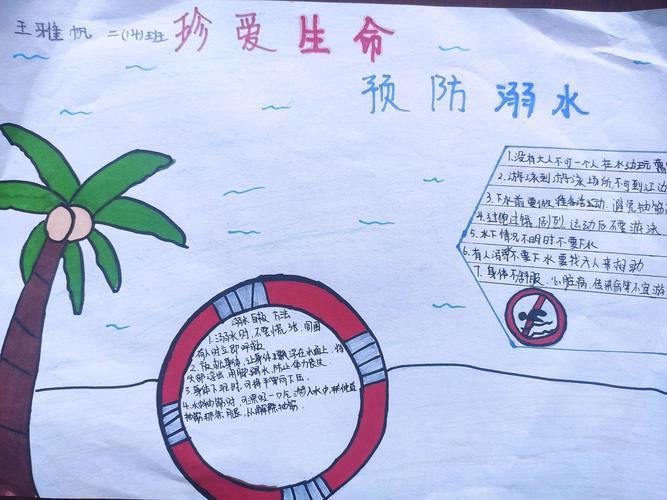 王雅帆 二(14)班 珍爱生命
预防溺水
1.没有大人不可一个人在水边玩
2.游泳到游泳场所,不可到江边
3.下水前要做准备运动.避免抽筋
4.过饱过饿剧烈运动后不要游泳
5.水下情况不明时不要下水
6.有人溺水不要下水要找大人来相助
7.身体不舒服、心脏病、传染病等不宜游
溺水自救方法
1.溺水时,不要慌张,周围
有人时立即呼救
2.放松身体,让身体飘浮在水面上,将
头部浮出 用脚踢水,防止体力丧失
3.身体下沉时,可将手掌向下压,
4.水中抽筋时,可深吸一口气潜入水中